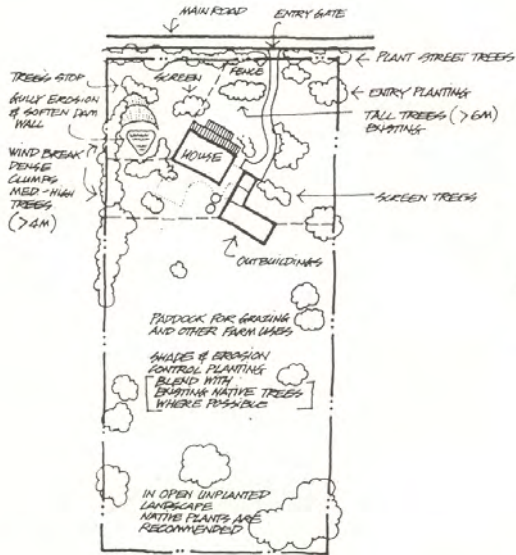 MAIN ROAD
ENTRY GATE
PLANT STREET TREES
TREES STOP
GULLY EROSION
& SOFTEN DAM
WALL
SCREEN
FENCE
ENTRY PLANTING
TALL TREES (>6M)
EXISTING
WIND BREAK
DENSE
CLUMPS
MED.-HIGH
TREES
(>4M)
HOUSE
SCREEN TREES
OUTBUILDINGS
PADDOCK FOR GRAZING
AND OTHER FARM USES
SHADE & EROSION
CONTROL PLANTING
BLEND WITH
EXISTING NATIVE TREES
WHERE POSSIBLE
IN OPEN UNPLANTED
LANDSCAPE
NATIVE PLANTS ARE
RECOMMENDED